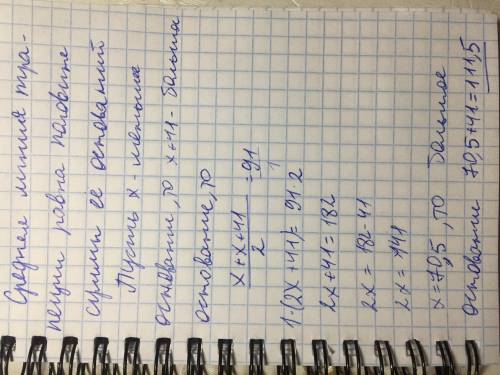 Средняя линия тра-
пеции равна половине
суммы её оснований
Пусть x - меньшее
основание, то x+41 - больше
основание, то
x+x+41/2 = 91/1
1·(2x+41)= 91·2
2x+41=182
2x = 182-41
2x = 141
x=70,5, то большее
основание 70,5+41=111,5